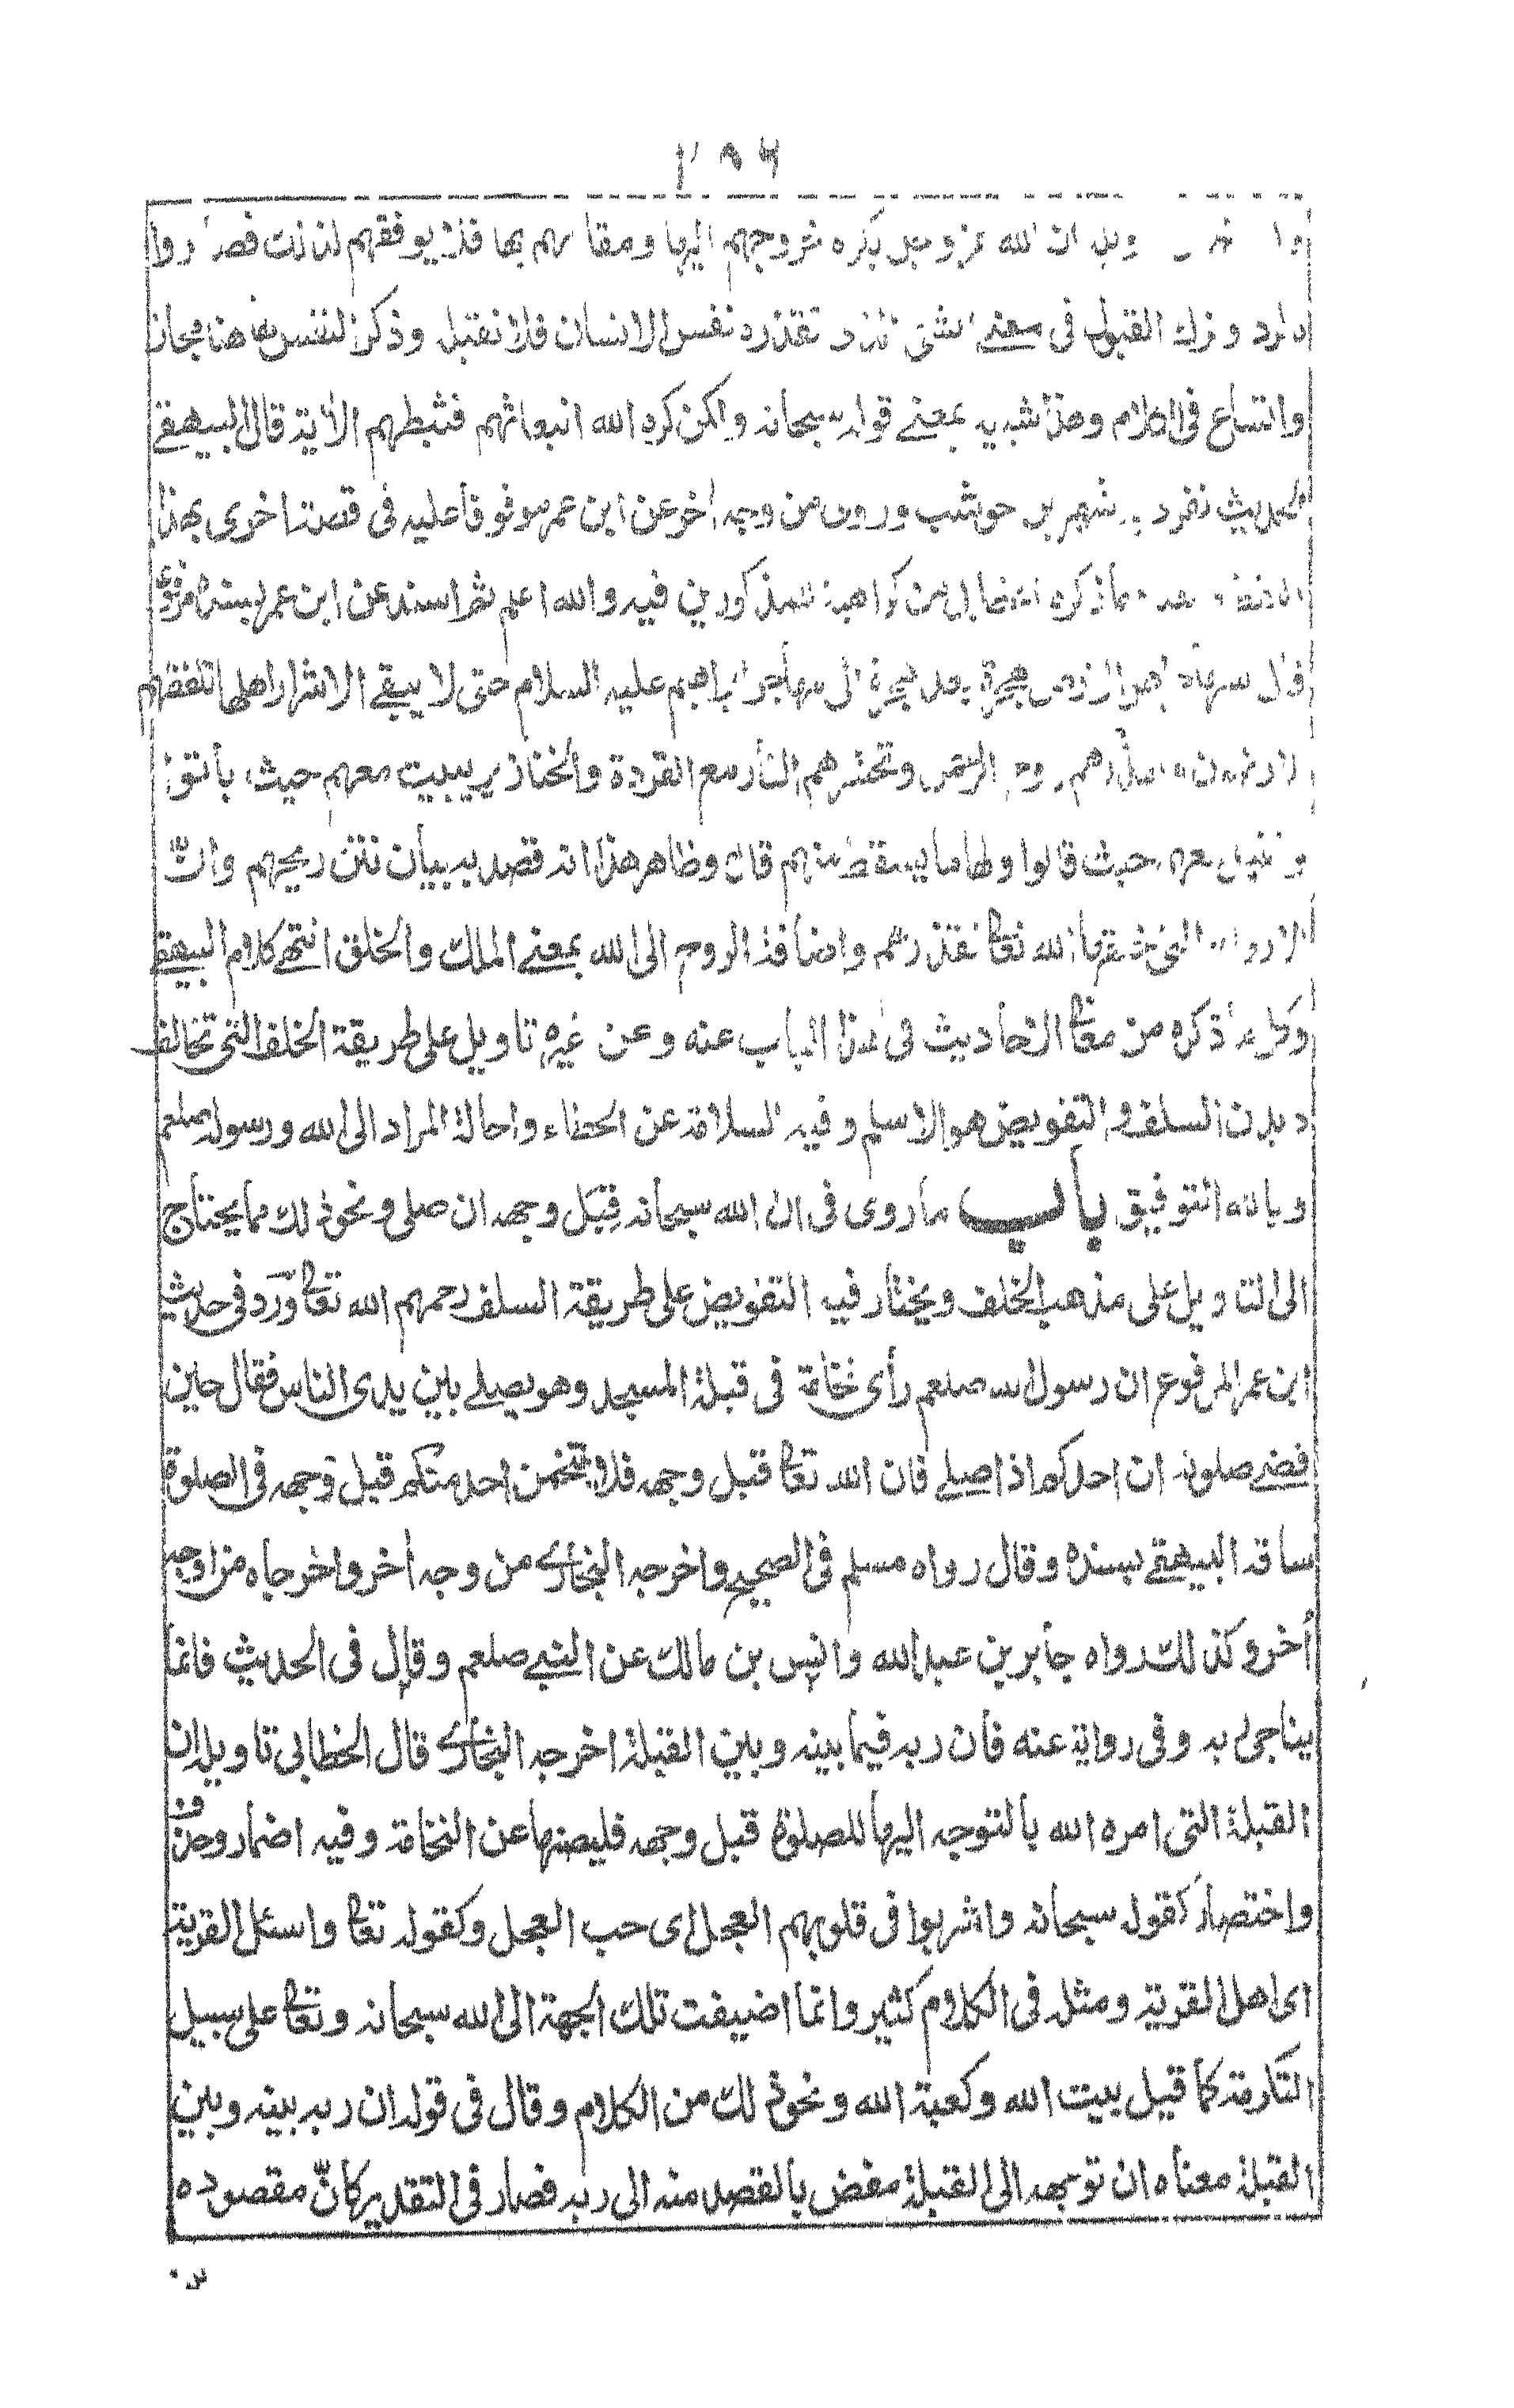 ان الله عز وجل يكره خروجهم اليها ومقامهم بها فلا يوفقهم لذلك فصاروا
بالرد وترك القبول فى معنى الشئ الذى تقذره نفس الانسان فلا تقبله وذكر النفس ههنا مجاز
واتساع فى الكلام وهذا شبيه بمعنے قوله سبحانه ولكن كره الله انبعاثهم فثبطهم الأية قال البيهقے
الحديث تفرد به شهر بن حوشب وروى من وجه أخر عن ابن عمر موقوفا عليه فى قصة اخرى بهذا
اللفظ ما ذكره الخطابى من كراهية المذكورين فيه والله اعلم ثم اسند عن ابن عمر بسنده مرفوعا
قال هجرة بعد هجرة الى مهاجر ابراهيم عليه السلام حتى لا يبقے الا شرار اهلها تلفظهم
الارضون وتقذرهم روح الرحمن وتحشرهم النار مع القردة والخنازير يبيت معهم حيث باتوا
وتقيل معهم حيث قالوا ولها ما يسقط منهم قال وظاهر هذا انه قصد به بيان نتن ريحهم وان
الارواح التى خلقها الله تعا تقذرهم واضافة الروح الى الله بمعنے الملك والخلق انتهے كلام البيهقے
وكل ما ذكره من معا الاحاديث فى هذا الباب عنه وعن غيره تاويل على طريقة الخلف التى تخالف
ديدن السلف والتفويض هو الاسلم وفيه السلامة عن الخطاء واحالة المراد الى الله ورسوله صلعم
وبالله التوفيق باب ما روى فى ان الله سبحانه قِبَل وجهه ان صلى ونحو ذلك مما يحتاج
الى التاويل على مذهب الخلف ويختار فيه التفويض على طريقة السلف رحمهم الله تعا ورد فى حديث
ابن عمر المرفوع ان رسول الله صلعم رأى نخامة فى قبلة المسجد وهو يصلے بين يدى الناس فقال حين
قضے صلوته ان احدكم اذا صلے فان الله تعا قبل وجهه فلا يتنخمن احد منكم قبل وجهه فى الصلوة
ساقه البيهقے بسنده وقال رواه مسلم فى الصحيح واخرجه البخارى من وجه أخر واخرجاه من اوجه
أخر وكذلك رواه جابر بن عبد الله وانس بن مالك عن النبے صلعم وقال فى الحديث فانما
يناجى ربه وفى رواية عنه فان ربه فيما بينه وبين القبلة اخرجه البخارى قال الخطابى تاويله ان
القبلة التى امره الله بالتوجه اليها للصلوة قبل وجهه فليصنها عن النخامة وفيه اضمار وحذف
واختصار كقوله سبحانه واشربوا فى قلوبهم العجل اى حب العجل وكقوله تعا واسئل القرية
اى اهل القرية ومثله فى الكلام كثير وانما اضيفت تلك الجهة الى الله سبحانه وتعا على سبيل
التكرمة كما قيل بيت الله وكعبة الله ونحو ذلك من الكلام وقال فى قوله ان ربه بينه وبين
القبلة معناه ان توجهه الى القبلة مفض بالقصد منه الى ربه فصار فى التقدير كانّ مقصوده